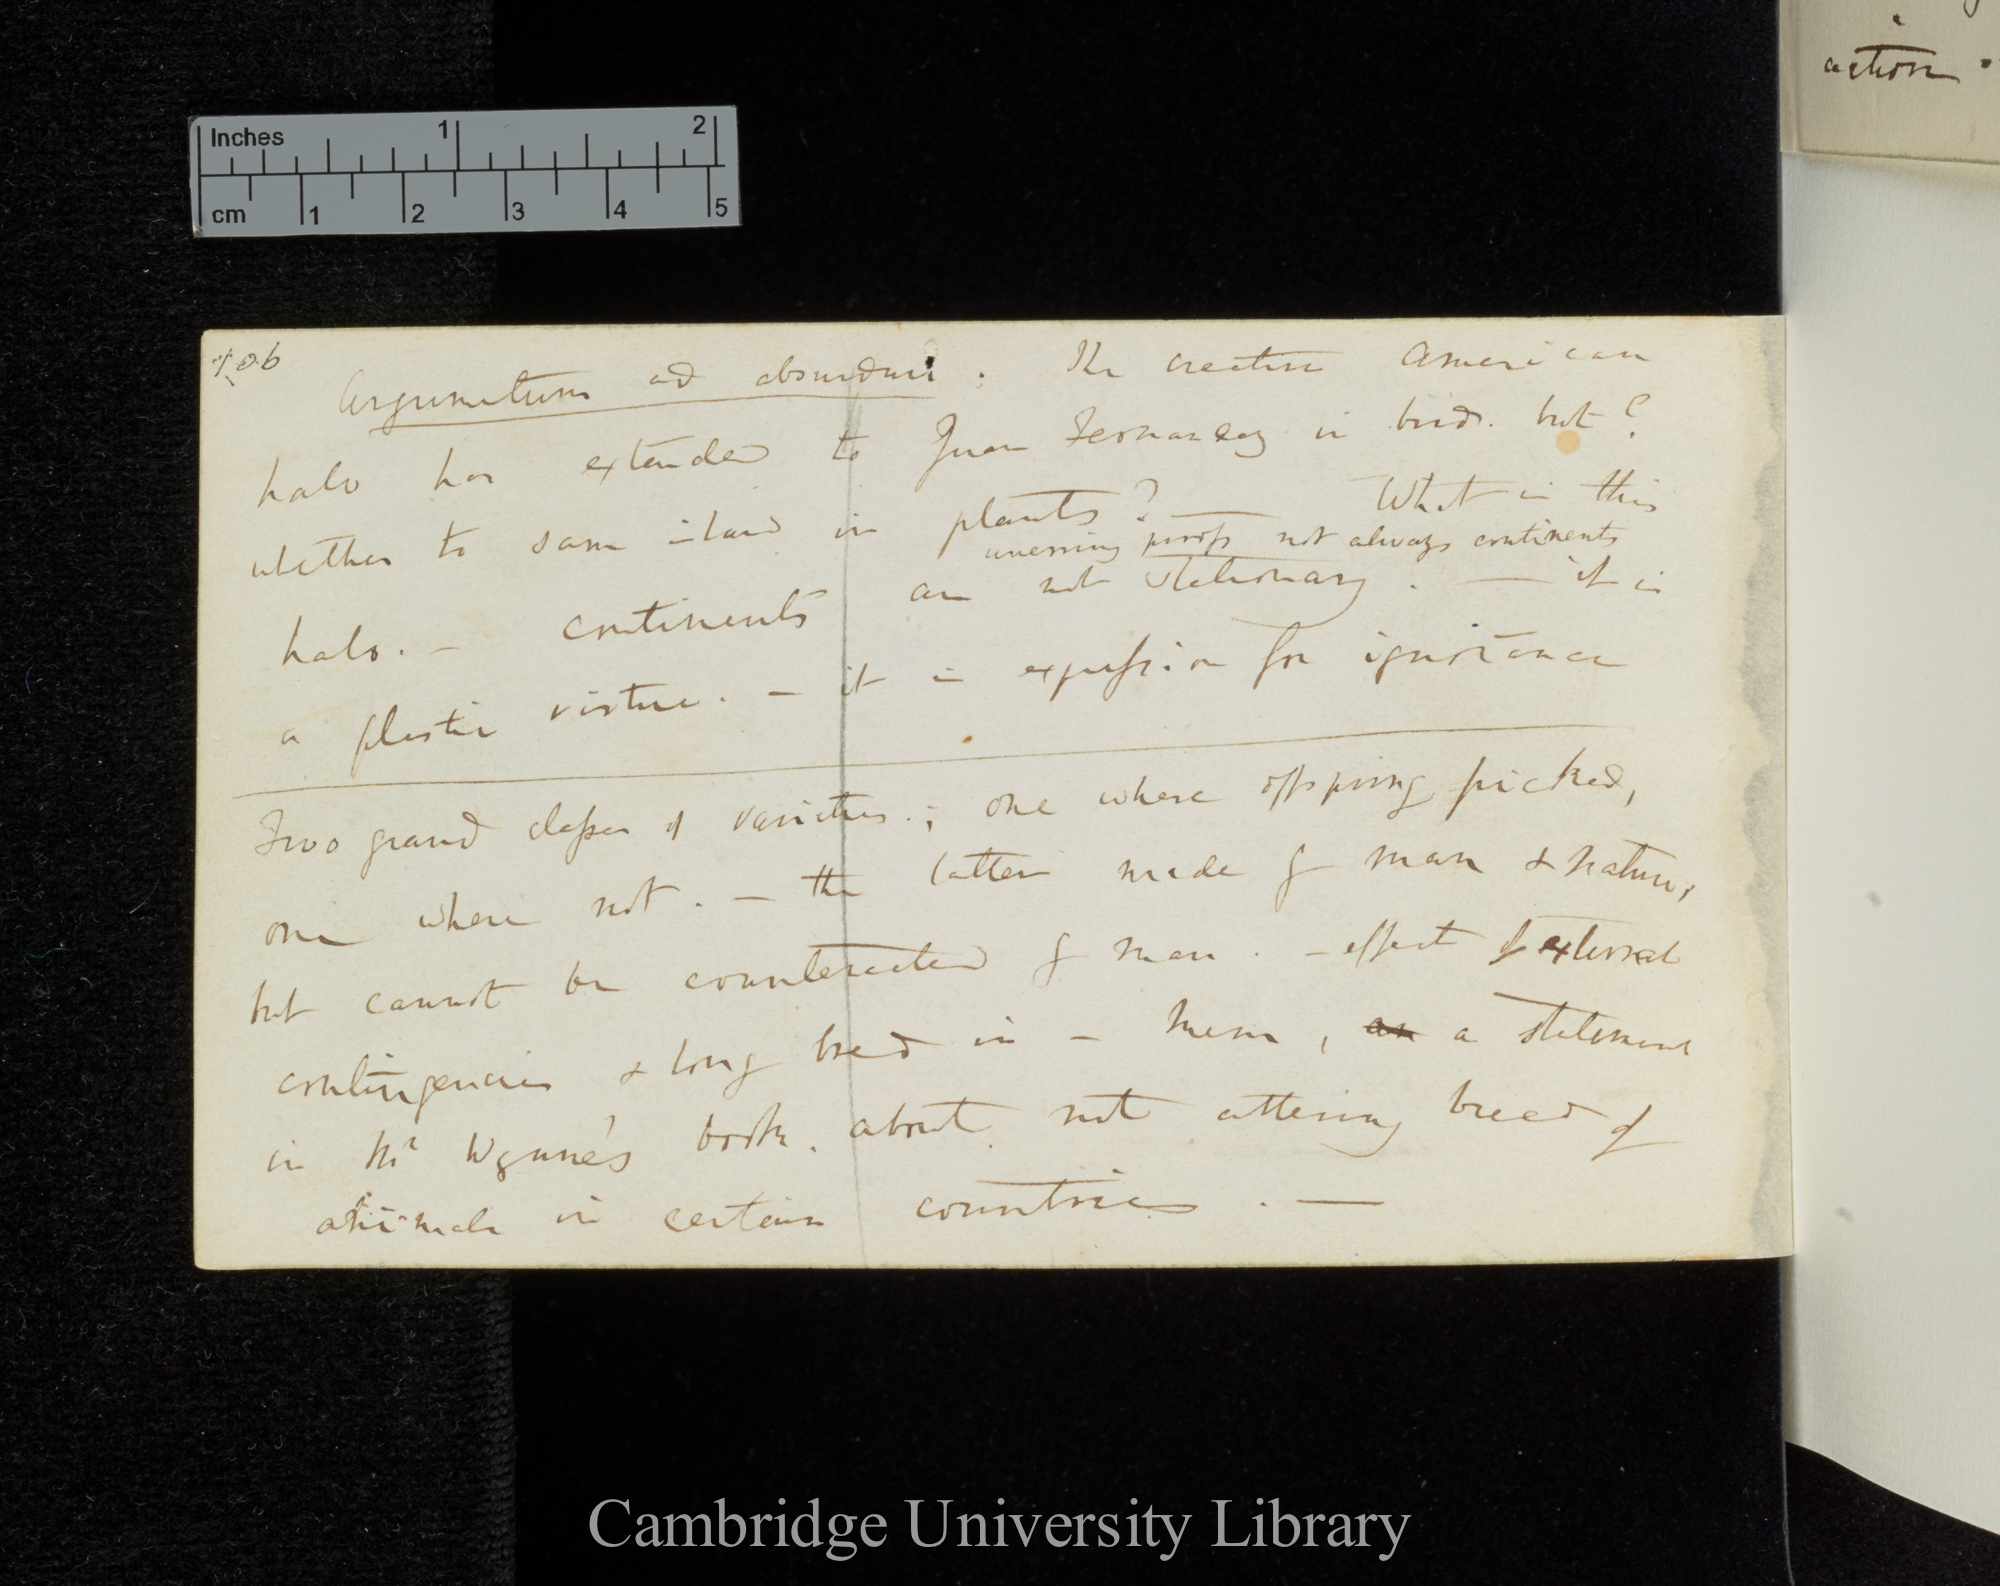 action .
Inches 1 2
cm 1 2 3 4 5
106
Argumentum ad absurdum. The creative American
halo has extended to Juan Fernandez in birds. but?
whether to same island in plants? — What is this
unerring proofs not always continents
halo. — continents are not stationary. — it is
a plastic virtue. — it is expression for ignorance
Two grand classes of varieties.; one where offspring picked,
one where not. — the latter made by man & nature,
but cannot be counteracted by man. — effect of external
contingencies & long bred in — Mem, an a statement
in Mr Wynne's book. about not altering breed of
animals in certain countries. —
Cambridge University Library